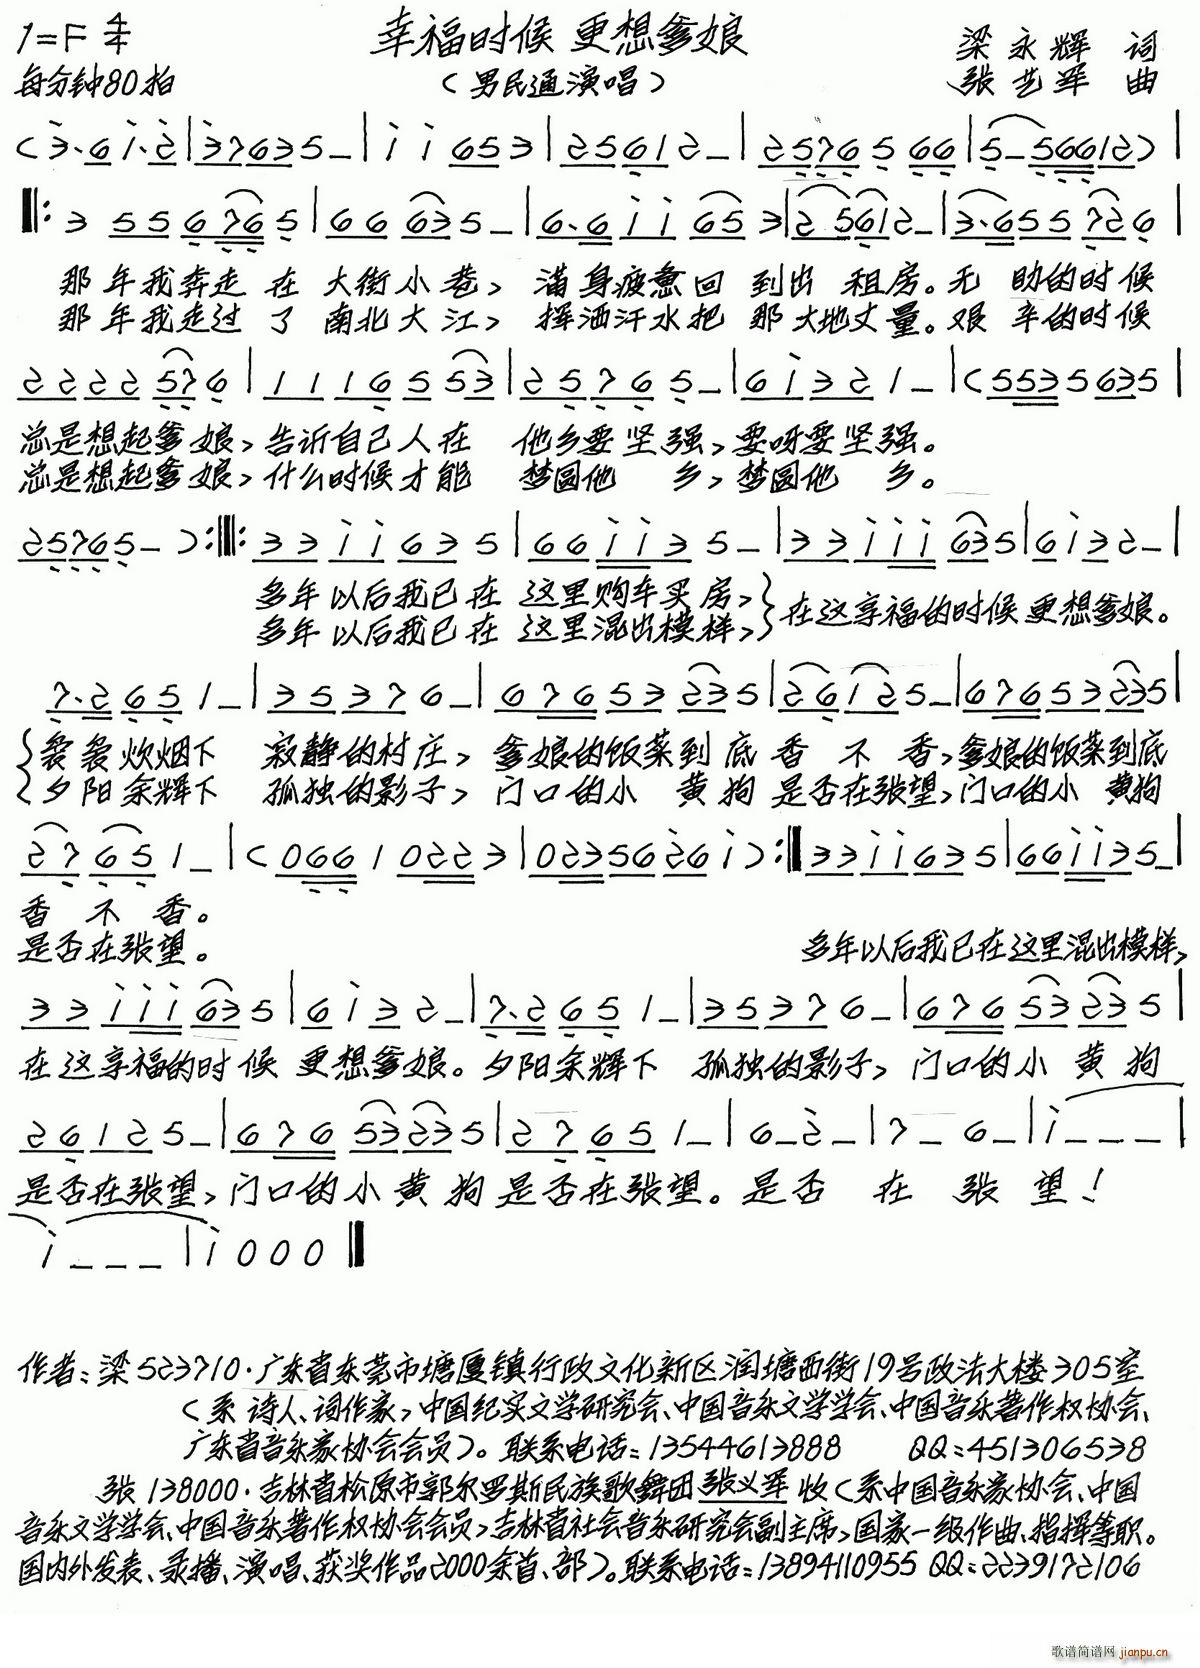 1=F 4/4 幸福时候 更想爹娘 梁永辉 词
每分钟80拍 （男民通演唱） 张艺军 曲
(3·6 1·2|3 7 6 3 5 -|1 1 6 5 3|2 5 6 1 2 -|2 5 7 6 5 6 6|5 - 5 6 6 1 2)|
‖: 3 5 5 6 7 6 5|6 6 6 3 5 -|6·6 1 1 6 5 3|2 5 6 1 2 -|3·6 5 5 7 2 6|
那年我奔走 在 大街小巷，满身疲惫回 到出 租房。无 助的时候
那年我走过 了 南北大江，挥洒汗水把 那大地丈量。艰 辛的时候
2 2 2 2 5 7 6|1 1 1 6 5 5 3|2 5 7 6 5 -|6 1 3 2 1 -|(5 5 3 5 6 3 5|
总是想起爹娘，告诉自己人在 他乡要坚强，要呀要坚强。
总是想起爹娘，什么时候才能 梦圆他 乡，梦圆他 乡。
2 5 7 6 5 - ):‖: 3 3 1 1 6 3 5|6 6 1 1 3 5 -|3 3 1 1 1 6 3 5|6 1 3 2 -|
多年以后我已在 这里购车买房，
多年以后我已在 这里混出模样，}在这享福的时候更想爹娘。
7·2 6 5 1 -|3 5 3 7 6 -|6 7 6 5 3 2 3 5|2 6 1 2 5 -|6 7 6 5 3 2 3 5|
袅袅炊烟下 寂静的村庄，爹娘的饭菜到底香 不 香，爹娘的饭菜到底
夕阳余辉下 孤独的影子，门口的小 黄狗是否在张望，门口的小 黄狗
2 7 6 5 1 -|(0 6 6 1 0 2 2 3|0 2 3 5 6 2 6 1):‖3 3 1 1 6 3 5|6 6 1 1 3 5 -|
香 不 香。
是否在张望。 多年以后我已在这里混出模样，
3 3 1 1 1 6 3 5|6 1 3 2 -|7·2 6 5 1 -|3 5 3 7 6 -|6 7 6 5 3 2 3 5|
在这享福的时候 更想爹娘。夕阳余辉下 孤独的影子，门口的小 黄狗
2 6 1 2 5 -|6 7 6 5 3 2 3 5|2 7 6 5 1 -|6 - 2 -|7 - 6 -|1 - - -|
是否在张望，门口的小黄狗是否在张望。是否 在 张 望！
1 - - -|1 0 0 0‖
作者：梁 523710·广东省东莞市塘厦镇行政文化新区润塘西街19号政法大楼305室
（系 诗人、词作家，中国纪实文学研究会、中国音乐文学学会、中国音乐著作权协会、
广东省音乐家协会会员）。联系电话：13544613888 QQ：451306538
张 138000·吉林省松原市郭尔罗斯民族歌舞团张义军收（系中国音乐家协会、中国
音乐文学学会、中国音乐著作权协会会员，吉林省社会音乐研究会副主席，国家一级作曲、指挥等职。
国内外发表、录播、演唱、获奖作品2000余首、部）。联系电话：13894110955 QQ：2239172106
歌谱简谱网 jianpu.cn